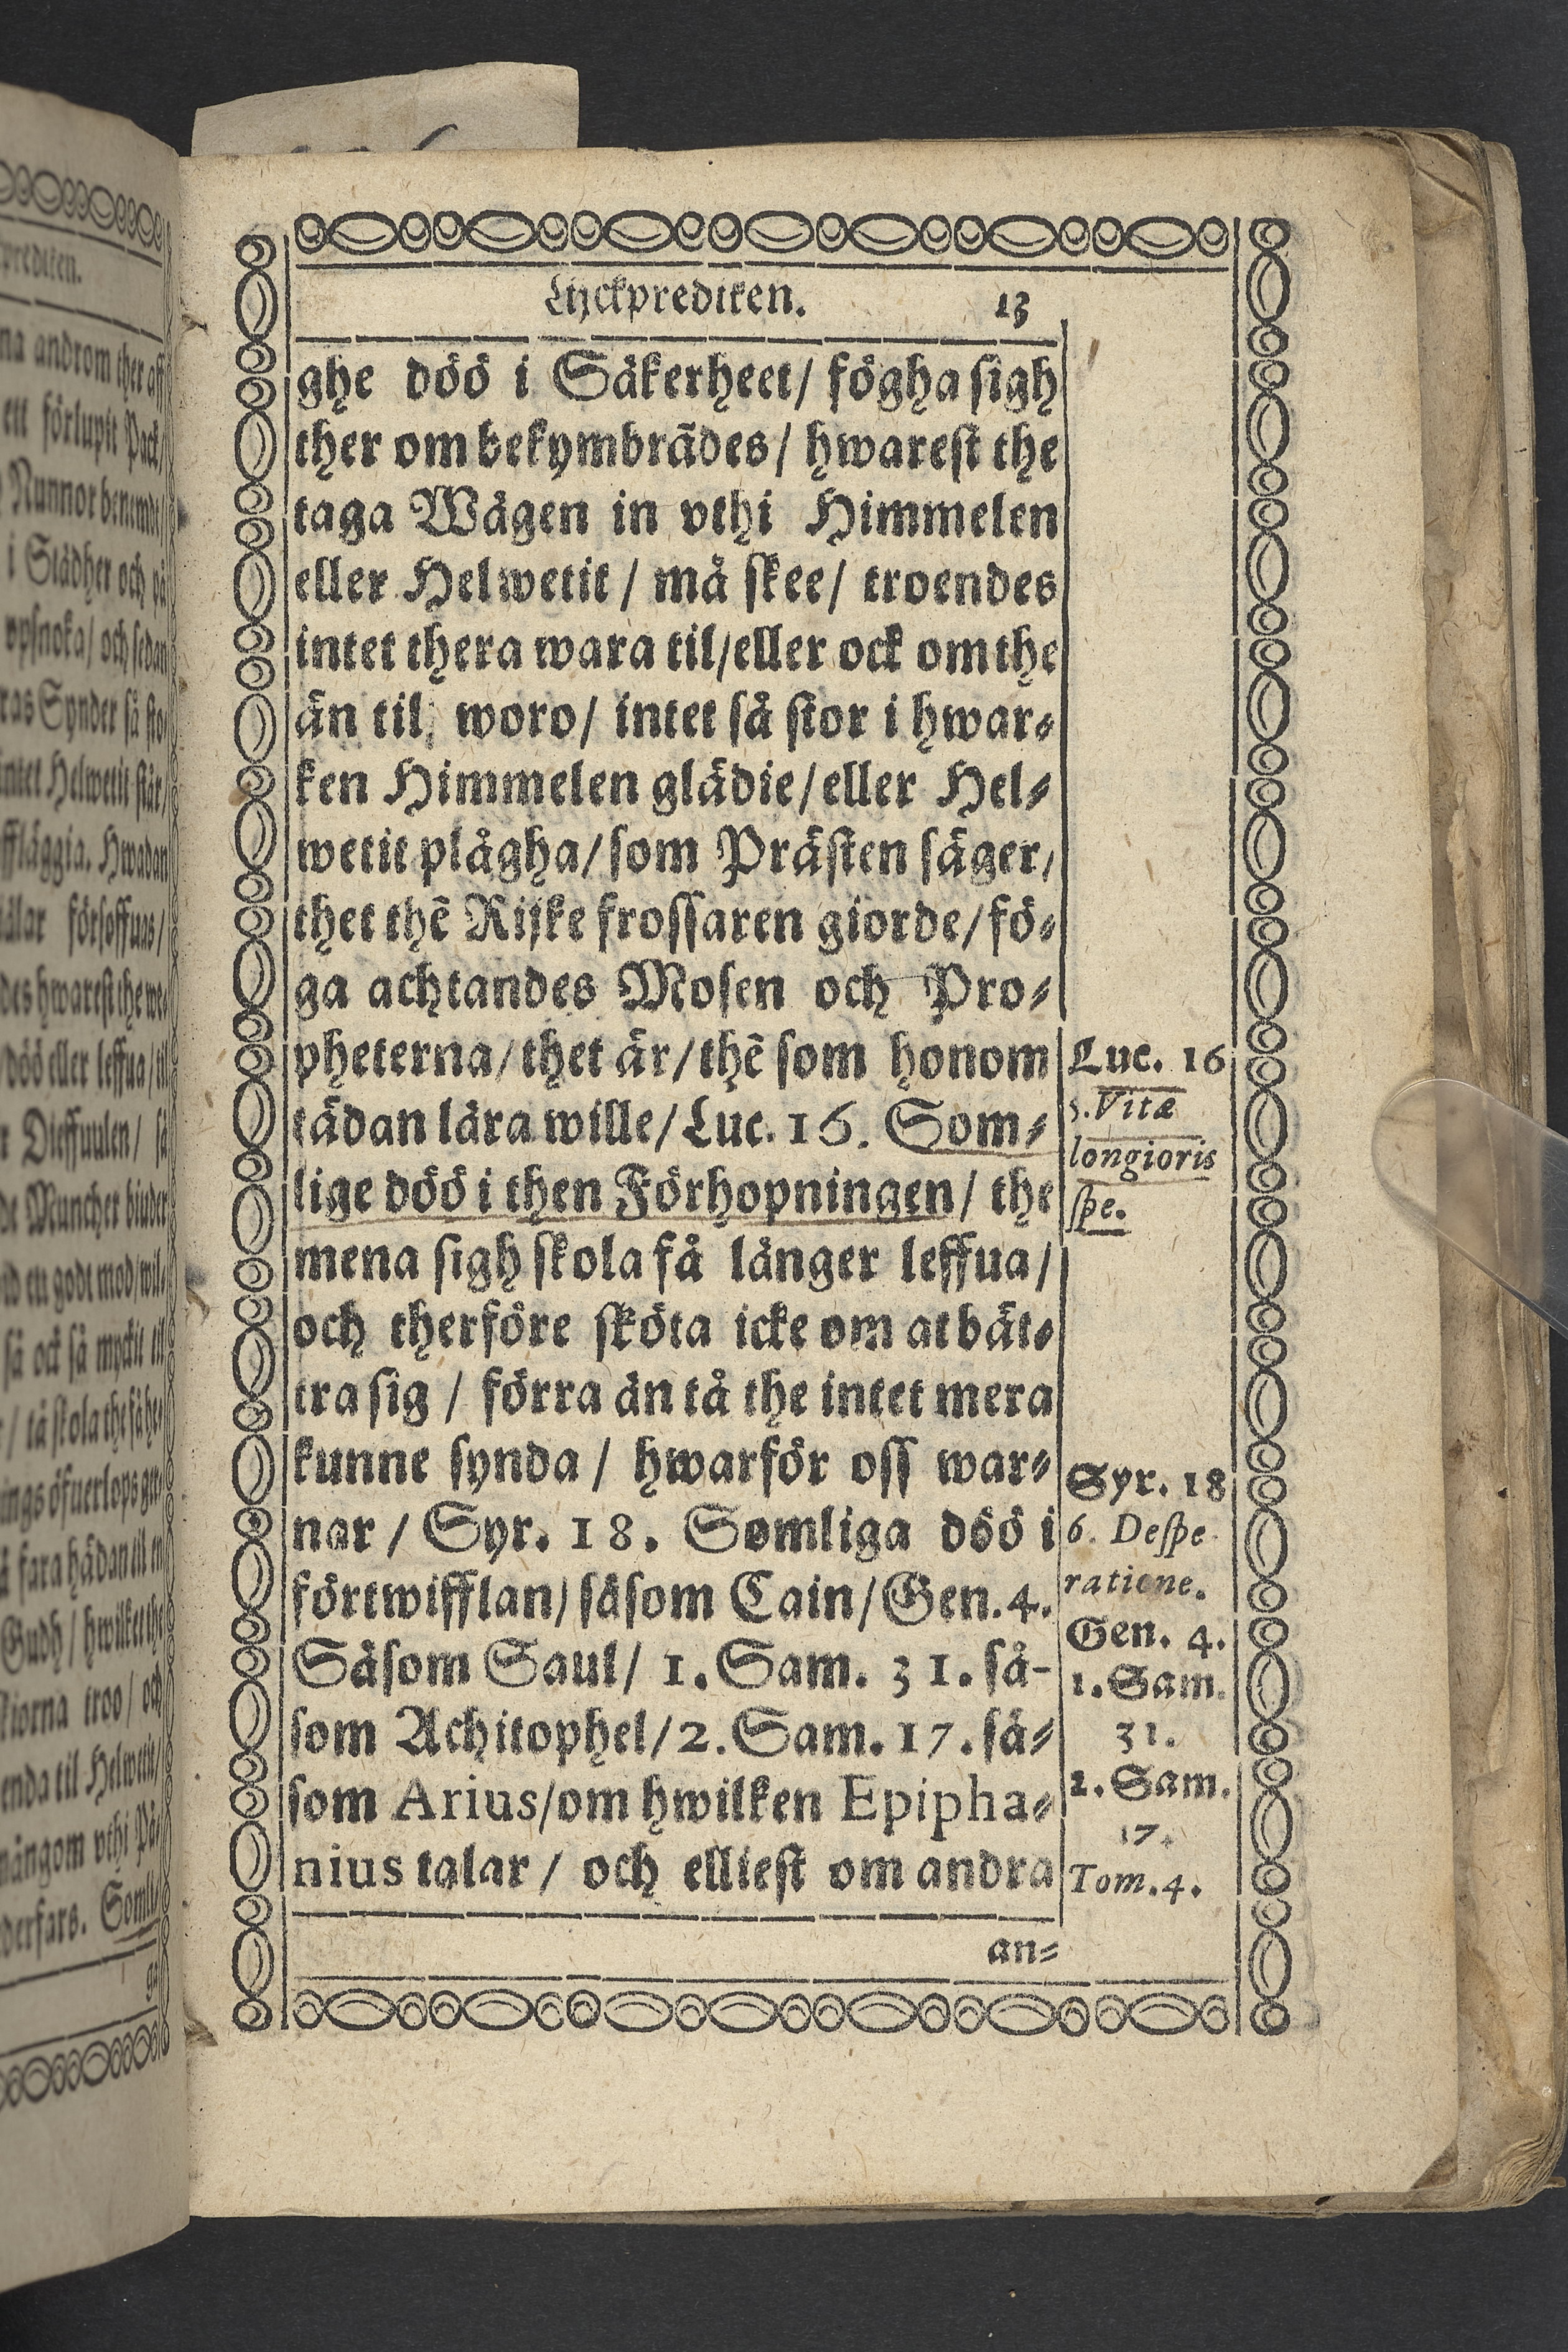 Lijckprediken. 13
ghe döö i Säkerheet/ fögha sigh
ther om bekymbrãdes/ hwarest the
taga Wägen in vthi Himmelen
eller Helwetit / må skee/ troendes
intet thera wara til/eller ock om the
än til woro/ intet så stor i hwar⸗
ken Himmelen glädie/eller Hel⸗
wetit plågha/som Prästen säger/
thet thẽ Rijke frossaren giorde/fö⸗
ga achtandes Mosen och Pro⸗
pheterna/thet är/thẽ som honom
tädan lära wille/Luc. 16. Som⸗
lige döö i then Förhopningen/ the
mena sigh skola få länger leffua/
och therföre sköta icke om at bät⸗
tra sig / förra än tå the intet mera
kunne synda / hwarför oss war⸗
nar / Syr. 18. Somliga döö i
förtwifflan/såsom Cain/Gen. 4.
Såsom Saul/ 1. Sam. 31. så-
som Achitophel/2. Sam. 17. så⸗
som Arius/om hwilken Epipha⸗
nius talar/ och elliest om andra
an⸗
Luc. 16
5. Vitæ
longioris
spe.
Syr. 18
6. Despe
ratione.
Gen. 4.
1. Sam.
31.
2. Sam.
17.
Tom. 4.
prediken.
na androm ther aff
ett förlupit Pack/
Nunnor benemde/
i Slädher och på
vpsnoka/ och sedan
ras Synder så sto/
intet Helwetit står/
ffläggia. Hwadan
des hwarest the we⸗
döö eller leffua/til
Dieffuulen/ så
de Muncher biuder
så ock så myckit til
/ tå skola the få he⸗
fara hädan til en
Gudh/ hwilket the
troo/ och
enda til Helwetit/
mångom vthi På/
derfars. Somli/